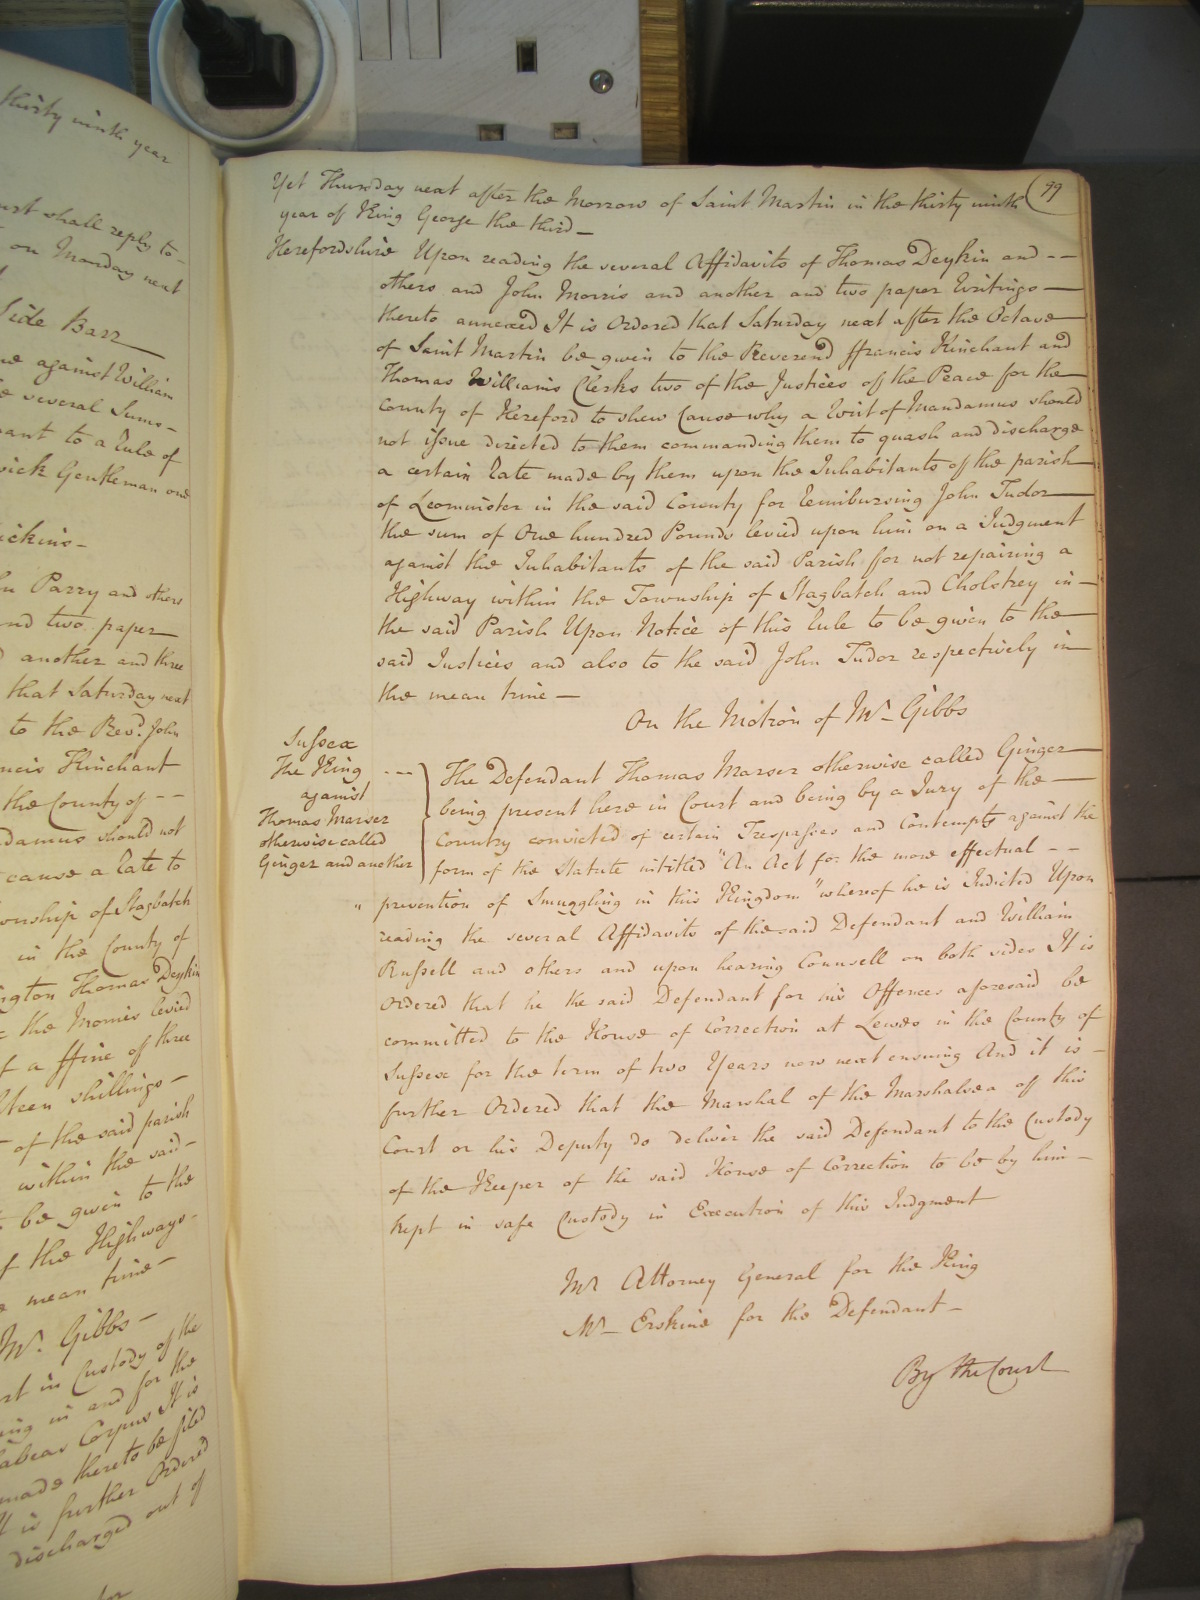 thirty ninth year
shall reply to-
on Monday next
Side Barr
against William
several Sums-
to a Rule of
Gentleman one
Parry and others
two paper
another and three
that Saturday next
to the Revd. John
Kinchant
the County of --
should not
cause a Rate to
of Stagbatch
in the County of
Thomas Deykin
the Monies levied
a ffine of three
shillings-
of the said parish
within the said-
be given to the
the Highways-
mean time-
Mr. Gibbs-
in Custody of the
in and for the
Corpus It is
made thereto be filed
It is further Ordered
discharged out of
for
99
Yet Thursday next after the Morrow of Saint Martin in the thirty ninth
year of King George the third-
Herefordshire Upon reading the several Affidavits of Thomas Deykin and --
others and John Morris and another and two paper Writings-
thereto annexed It is Ordered that Saturday next after the Octave
of Saint Martin be given to the Reverend ffrancis Kinchant and
Thomas Williams Clerks two of the Justices of the Peace for the
County of Hereford to shew Cause why a Writ of Mandamus should
not issue directed to them commanding them to quash and discharge
a certain Rate made by them upon the Inhabitants of the parish
of Leominster in the said County for Reimbursing John Tudor
the sum of One hundred Pounds levied upon him on a Judgment
against the Inhabitants of the said Parish for not repairing a
Highway within the Township of Stagbatch and Cholstrey in-
the said Parish Upon Notice of this Rule to be given to the
said Justices and also to the said John Tudor respectively in
the mean time-
On the Motion of Mr Gibbs
Sussex
The King
against
Thomas Marser
otherwise called
Ginger and another
The Defendant Thomas Marser otherwise called Ginger
being present here in Court and being by a Jury of the-
Country convicted of certain Trespasses and Contempts against the
form of the Statute intitled "An Act for the more effectual --
" prevention of Smuggling in this Kingdom" whereof he is Indicted Upon
reading the several Affidavits of the said Defendant and William
Russell and others and upon hearing Counsell on both sides It is
Ordered that he the said Defendant for his Offences aforesaid be
committed to the House of Correction at Lewes in the County of
Sussex for the term of two Years now next ensuing And it is-
further Ordered that the Marshal of the Marshalsea of this
Court or his Deputy do deliver the said Defendant to the Custody
of the Keeper of the said House of Correction to be by him-
kept in safe Custody in Execution of this Judgment
Mr Attorney General for the King
Mr Erskine for the Defendant-
By the Court